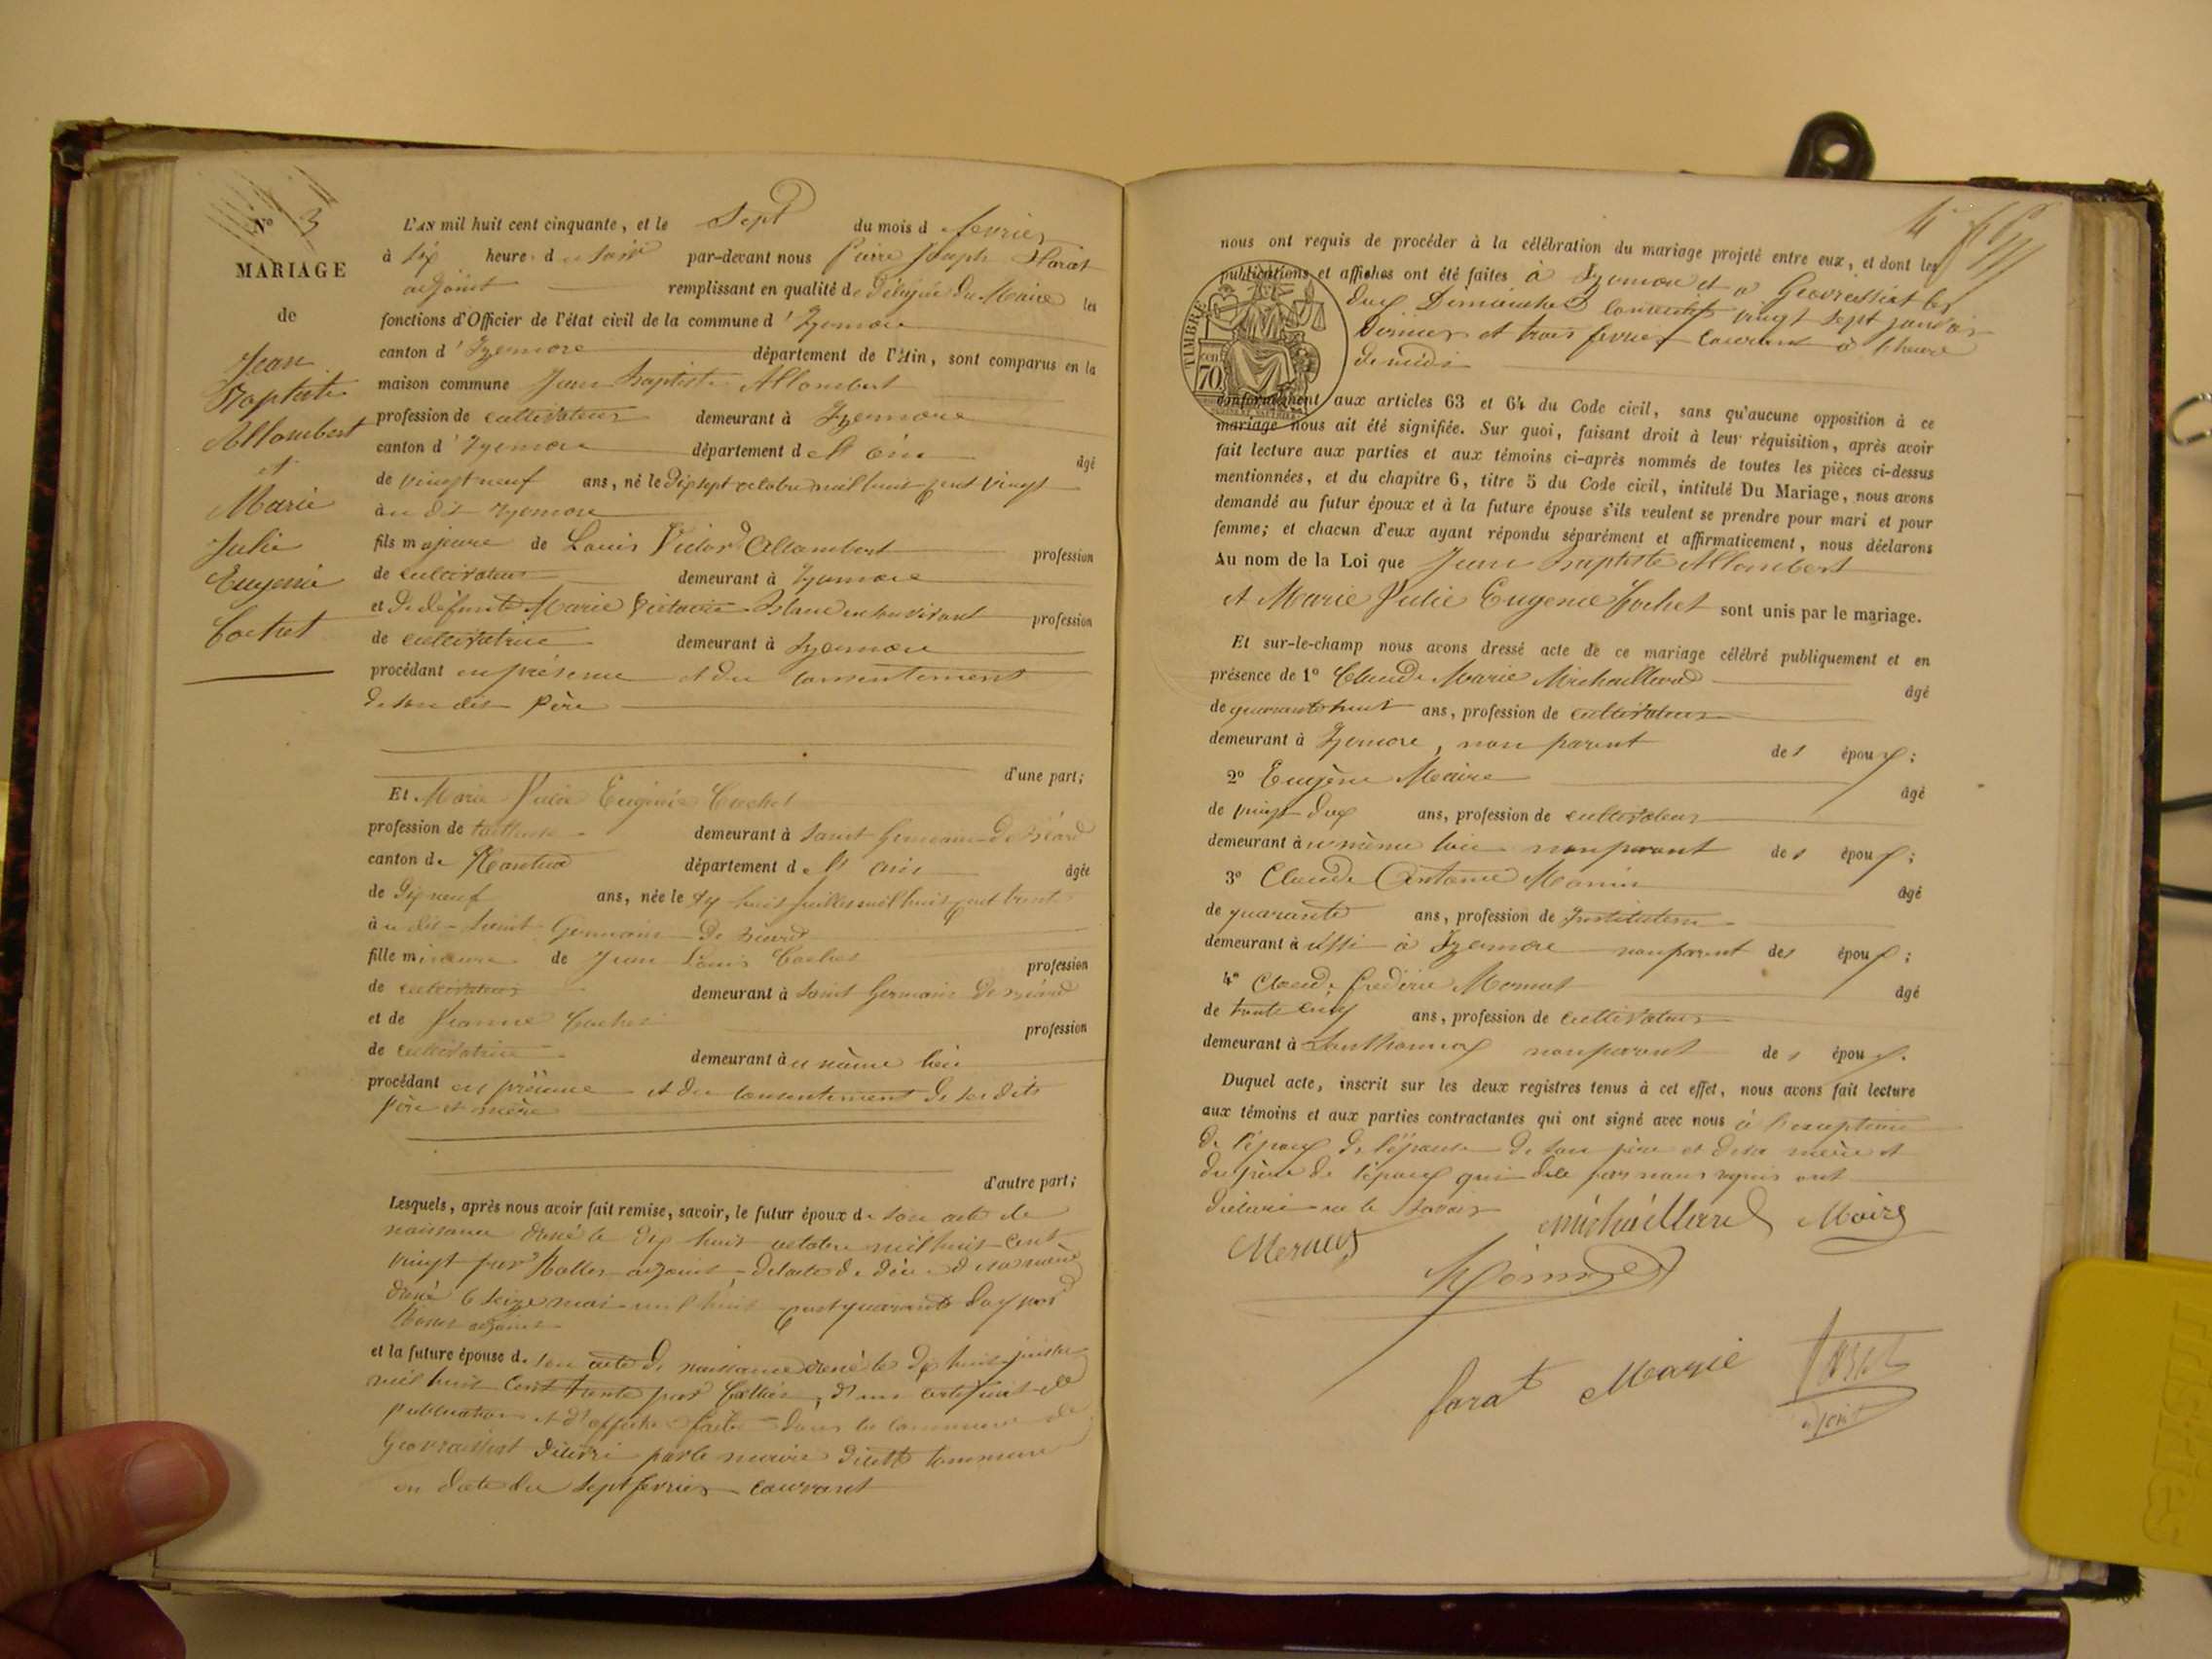 N° 3
MARIAGE
de
Jean
Baptiste
Allombert
et
Marie
Julie
Eugenie
Cochet
L'AN mil huit cent cinquante, et le sept du mois de fevrier
à six heures du soir par-devant nous Pierre Joseph
adjoint remplissant en qualité de délégué du Maire les
fonctions d'Officier de l'état civil de la commune d'Izernore
canton d'Izernore département de l'Ain, sont comparus en la
maison commune Jean Baptiste Allombert
profession de cultivateur demeurant à Izernore
canton d'Izernore département de l'ain âgé
de vingt neuf ans, né le dix sept octobre mil huit cent vingt
au dit Izernore
fils majeur de Louis Victor Allombert profession
de cultivateur demeurant à Izernore
et de défunte Marie Victoire en son vivant profession
de cultivatrice demeurant à Izernore
procédant en présence et du consentement
de son dit père
d'une part;
Et Marie Julie Eugénie Cochet
profession de tailleuse demeurant à Saint Germain de Béard
canton de Nantua département de l'ain âgée
de dix neuf ans, née le dix huit juillet mil huit cent trente
au dit Saint Germain de Béard
fille mineure de Jean Louis Cochet profession
de cultivateur demeurant à Saint Germain de Béard
et de Jeanne Cochet profession
de cultivatrice demeurant au même lieu
procédant en présence et du consentement de ses dits
père et mère
d'autre part;
Lesquels, après nous avoir fait remise, savoir, le futur époux de son acte de
naissance dressé le dix huit octobre mil huit cent
vingt par adjoint, de l'acte de décès de sa mère
dressé le seize mai mil huit cent quarante deux par
adjoint
et la future épouse de son acte de naissance dressé le dix huit juillet
mil huit cent trente par , d'un certificat de
publication et d'affiche faite dans la commune de
Geovreissiat délivré par le maire de cette commune
en date du sept fevrier courant
4
nous ont requis de procéder à la célébration du mariage projeté entre eux, et dont les
publications et affiches ont été faites à Izernore et a Geovreissiat les
deux Dimanches consécutifs vingt sept janvier
dernier et trois fevrier courant à l'heure
de midi
TIMBRE
70
conformément aux articles 63 et 64 du Code civil, sans qu'aucune opposition à ce
mariage nous ait été signifiée. Sur quoi, faisant droit à leur réquisition, après avoir
fait lecture aux parties et aux témoins ci-après nommés de toutes les pièces ci-dessus
mentionnées, et du chapitre 6, titre 5 du Code civil, intitulé Du Mariage, nous avons
demandé au futur époux et à la future épouse s'ils veulent se prendre pour mari et pour
femme; et chacun d'eux ayant répondu séparément et affirmativement, nous déclarons
Au nom de la Loi que Jean Baptiste Allombert
et Marie Julie Eugenie Cochet sont unis par le mariage.
Et sur-le-champ nous avons dressé acte de ce mariage célébré publiquement et en
présence de 1° Claude Marie Michaillard âgé
de quarante huit ans, profession de cultivateur
demeurant à Izernore, non parent des époux;
2° Eugène Maire âgé
de vingt deux ans, profession de cultivateur
demeurant au même lieu non parent des époux;
3° Claude Antoine Monin âgé
de quarante ans, profession de Instituteur
demeurant aussi à Izernore non parent des époux;
4° Claude Frédéric âgé
de trente cinq ans, profession de cultivateur
demeurant à Sonthonnax non parent des époux.
Duquel acte, inscrit sur les deux registres tenus à cet effet, nous avons fait lecture
aux témoins et aux parties contractantes qui ont signé avec nous à l'exception
de l'époux de l'épouse de son père et de sa mère et
du père de l'époux qui de ce par nous requis ont
déclaré ne le savoir
Michaillard Maire
Monin
Marie
adjoint